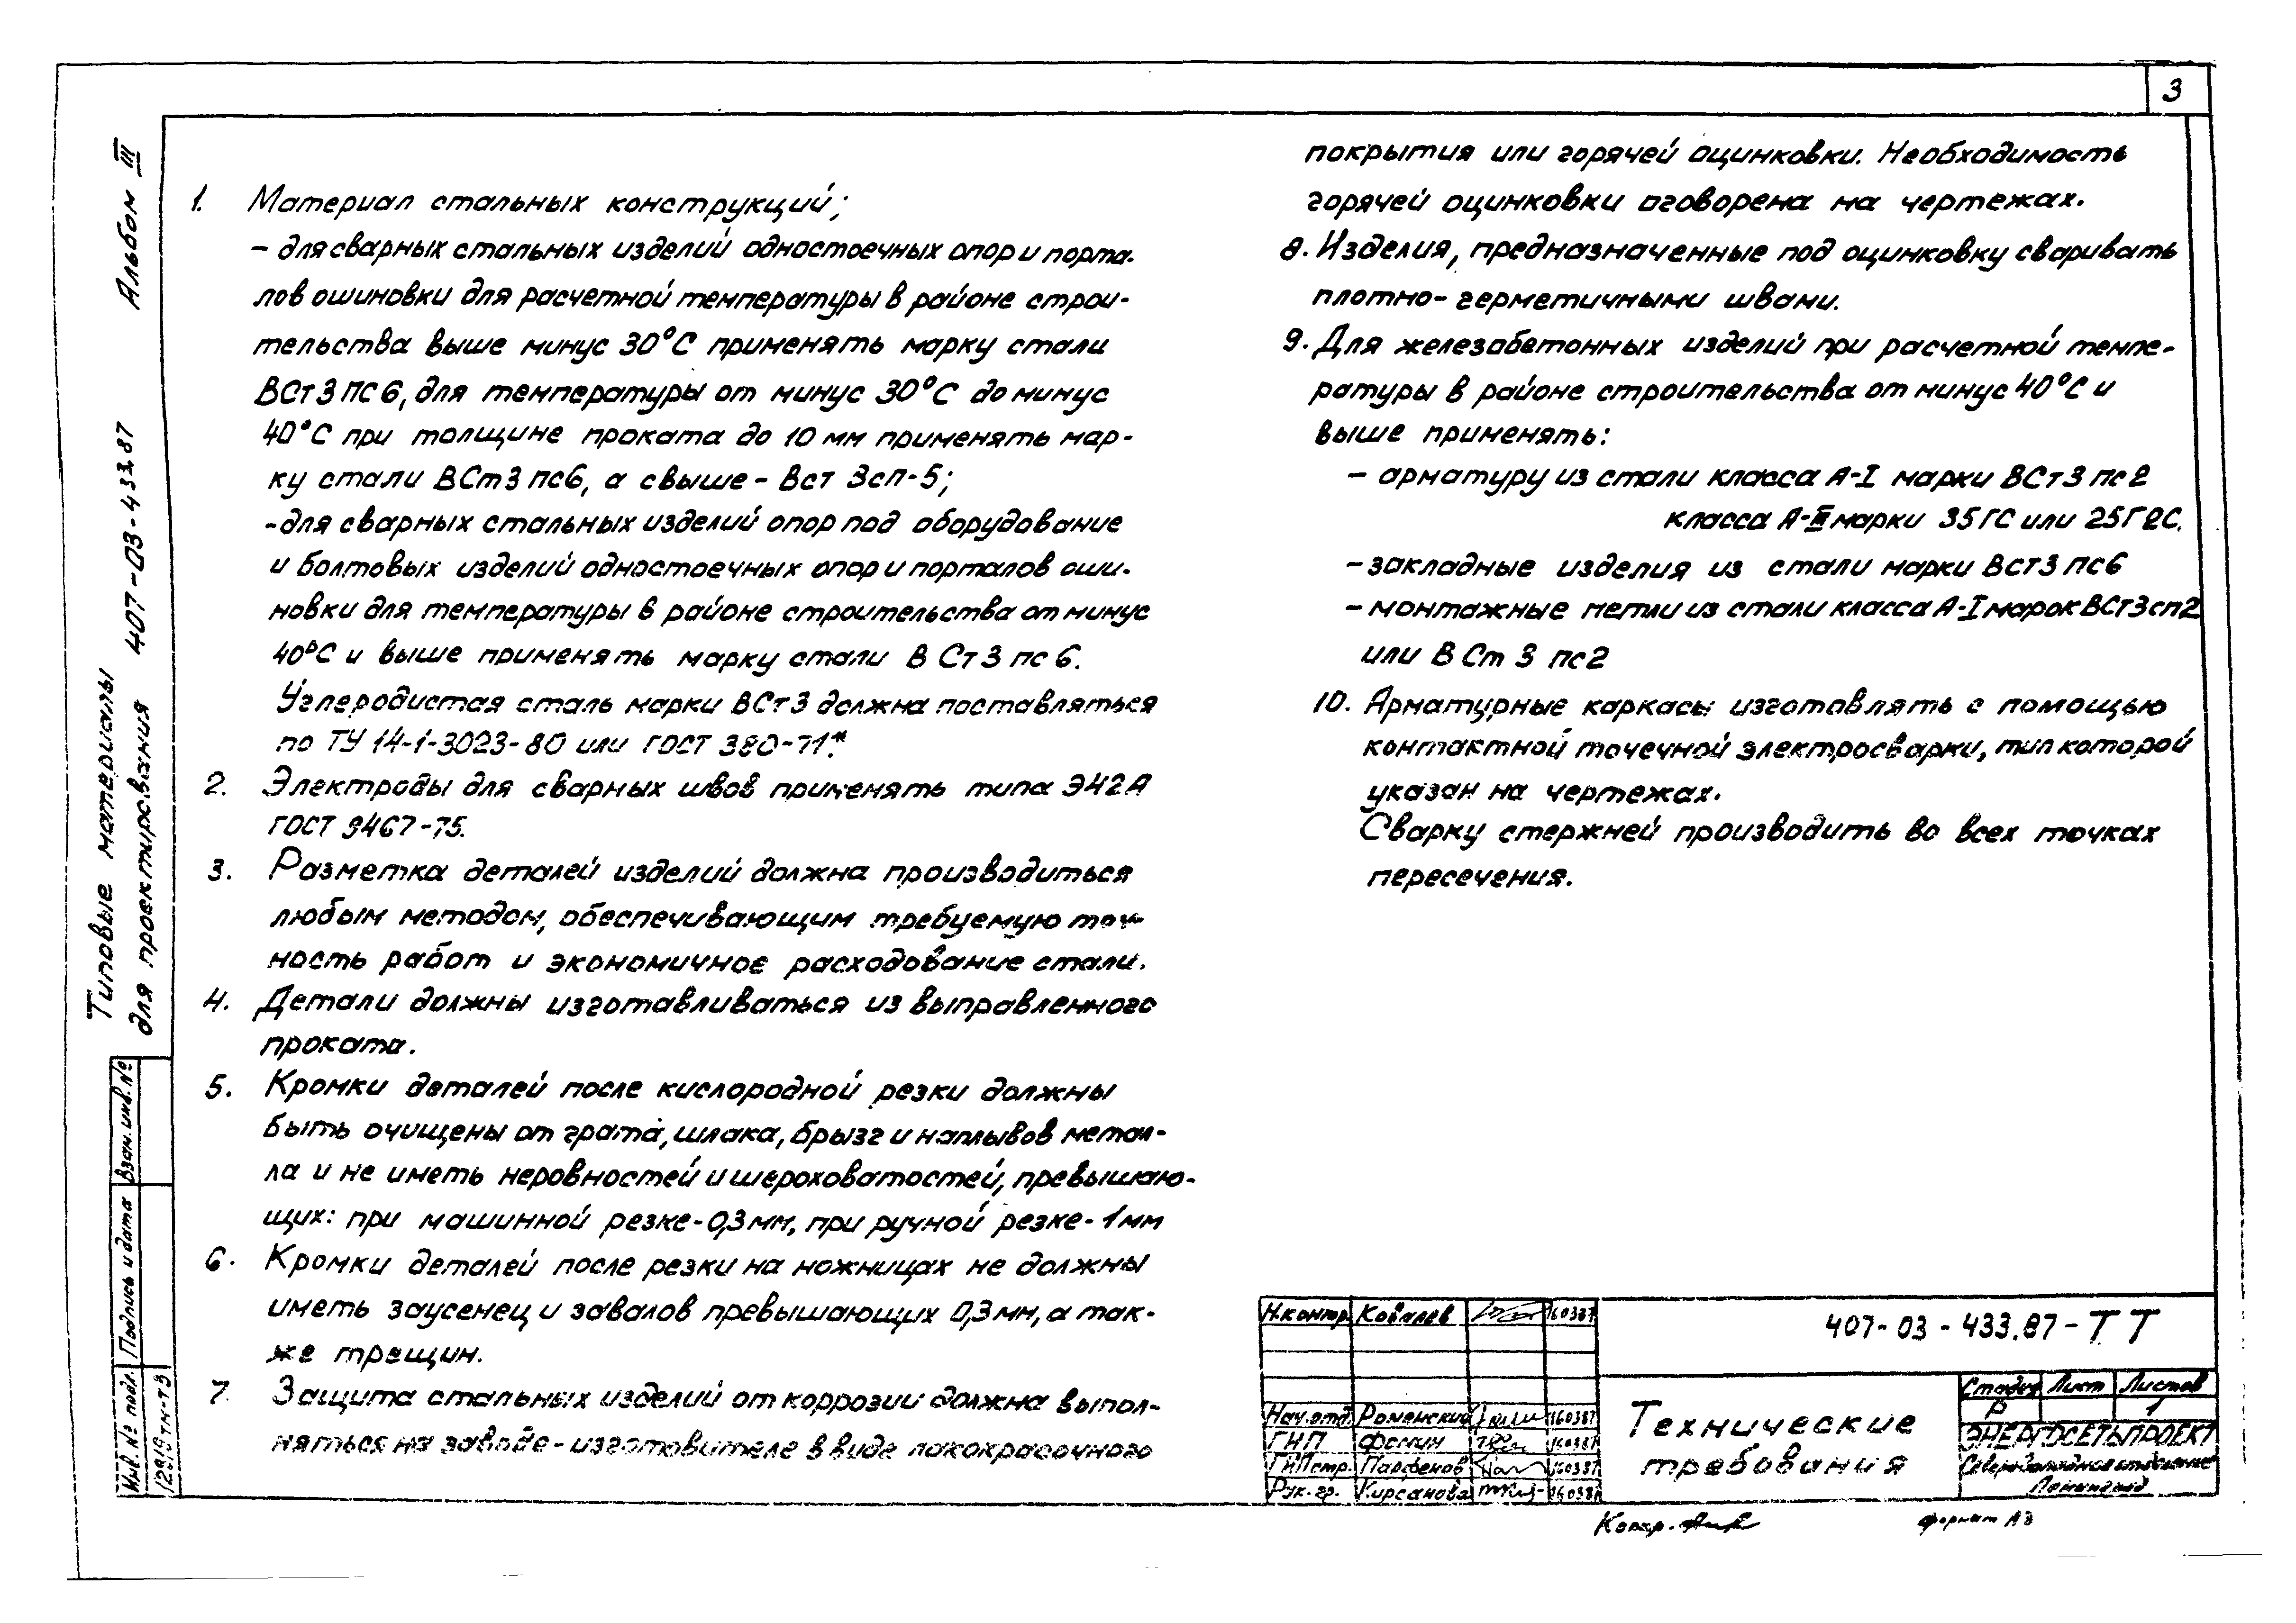 3
1. Материал стальных конструкций;
– для сварных стальных изделий одностоечных опор и порта-
лов ошиновки для расчетной температуры в районе строи-
тельства выше минус 30°С применять марку стали
ВСт3пс6, для температуры от минус 30°С до минус
40°С при толщине проката до 10 мм применять мар-
ку стали ВСт3пс6, а свыше – Вст 3сп-5;
-для сварных стальных изделий опор под оборудование
и болтовых изделий одностоечных опор и порталов оши-
новки для температуры в районе строительства от минус
40°С и выше применять марку стали В Ст 3 пс 6.
Углеродистая сталь марки ВСт3 должна поставляться
по ТУ 14-1-3023-80 или ГОСТ 380-71*.
2. Электроды для сварных швов применять типа Э42А
ГОСТ 9467-75.
3. Разметка деталей изделий должна производиться
любым методом, обеспечивающим требуемую точ-
ность работ и экономичное расходование стали.
4. Детали должны изготавливаться из выправленного
проката.
5. Кромки деталей после кислородной резки должны
быть очищены от грата, шлака, брызг и наплывов метал-
ла и не иметь неровностей и шероховатостей, превышаю-
щих: при машинной резке-0,3мм, при ручной резке-1мм
6. Кромки деталей после резки на ножницах не должны
иметь заусенец и завалов превышающих 0,3мм, а так-
же трещин.
7. Защита стальных изделий от коррозии должна выпол-
няться на заводе-изготовителе в виде лакокрасочного
покрытия или горячей оцинковки. Необходимость
горячей оцинковки оговорена на чертежах.
8. Изделия, предназначенные под оцинковку сваривать
плотно-герметичными швами.
9. Для железабетонных изделий при расчетной темпе-
ратуры в районе строительства от минус 40°С и
выше применять:
– арматуру из стали класса А-I марки ВСт3пс2
класса А-III марки 35ГС или 25Г2С.
– закладные изделия из стали марки Вст3пс6
– монтажные петли из стали класса А-I марок ВСт3сп2
или В Ст 3 пс2
10. Арматурные каркасы изготовлять с помощью
контактной точечной электросварки, тип которой
указан на чертежах.
Сварку стержней производить во всех точках
пересечения.
Типовые материалы
для проектирования 407-03-433.87 Альбом III
Инв. № подл. Подпись и дата Взам. инв. №
12919тм-т3
Н.контр. Ковалев 160387
Нач.отд. Роменский 160387
ГИП Фомин 160387
ГИПстр. Парфенов 160387
Рук.гр. Кирсанова 160387
407-03-433.87-ТТ
Технические
требования
Стадия Лист Листов
Р 1
ЭНЕРГОСЕТЬПРОЕКТ
Северо-Западное отделение
Ленинград
Копир.
формат А3